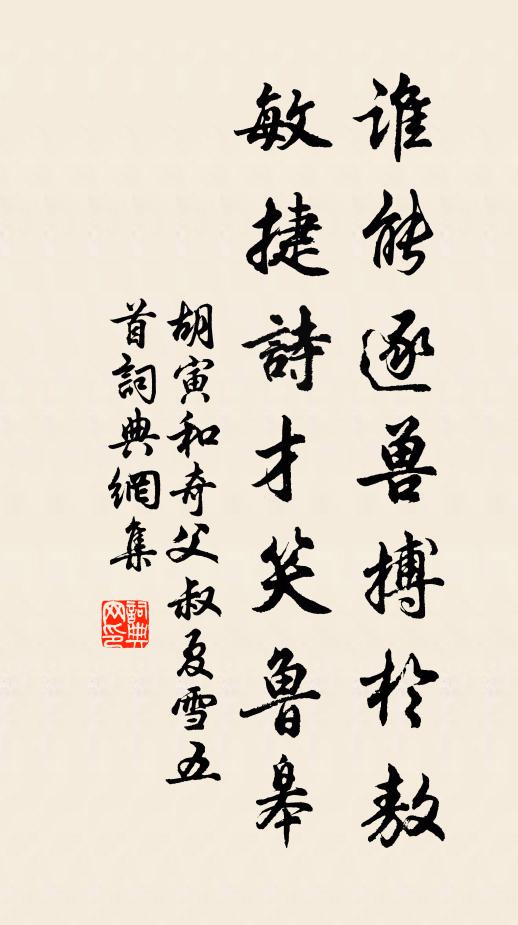 谁能逐兽搏於敖
敏捷詩才笑魯皋
胡寅和奇父叔夏雪五
首詞典網集
詞典网印